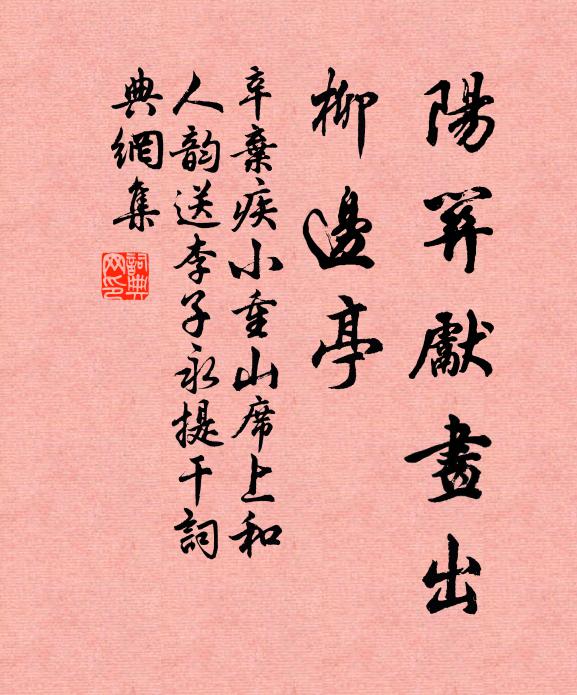 陽關獻畫出
柳邊亭
辛棄疾小重山席上和
人韵送李子永提干詞
典網集
詞典
网印